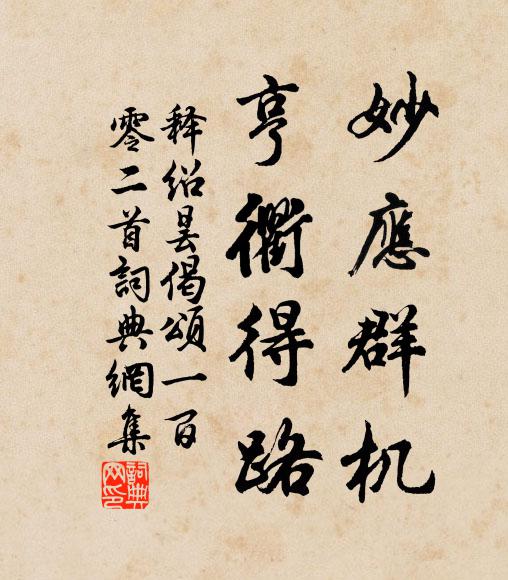 妙應群机
亨衢得路
释绍昙偈頌一百
零二首詞典網集
詞典網印